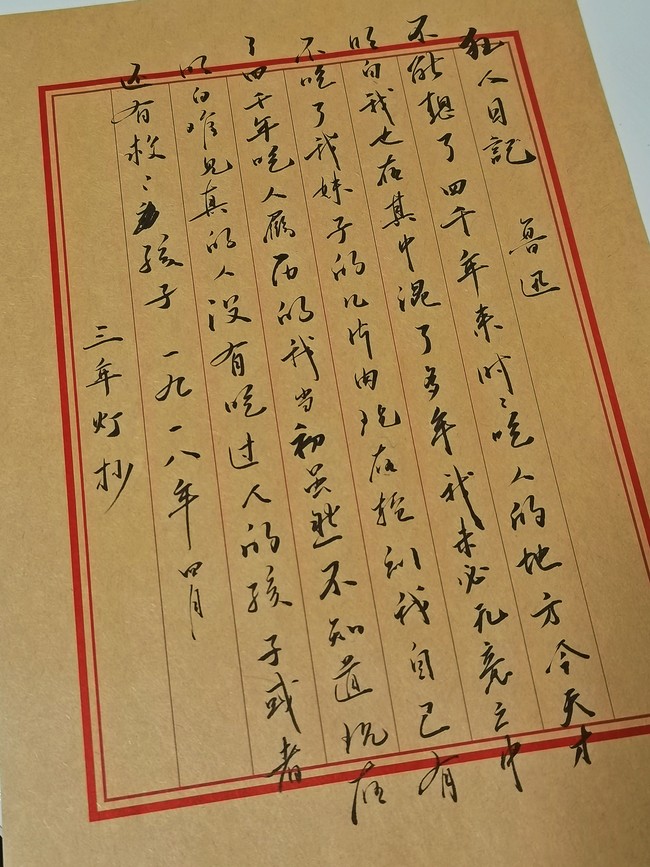 狂人日記 魯迅
不能想了四千年来时々吃人的地方今天才
明白我也在其中混了多年我未必无意之中
不吃了我妹子的几片肉现在轮到我自己有
了四千年吃人履历的我当初虽然不知道现在
明白难见真的人没有吃过人的孩子或者
还有救々孩子 一九一八年四月
三年灯抄